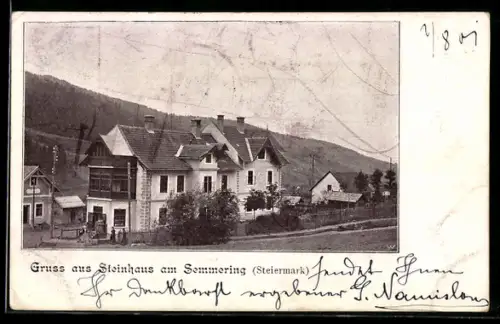 1/8 01
Gruss aus Steinhaus am Semmering (Steiermark) sendet Ihnen
Ihr dankbarst ergebener